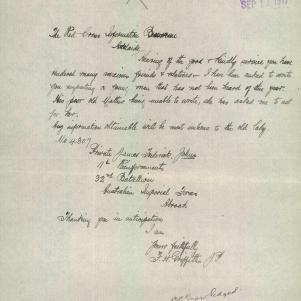 SEP 1 1917
The Red Cross Information Bureau
Adelaide
Hearing of the good & kindly service you have
rendered many anxious friends & relatives - I have been asked to write
you respecting a man that has not been heard of this year.
His poor old Mother being unable to write, she has asked me to act
for her.
Any information obtainable will be most welcome to the old lady
No 4307
Private James Frederick
11th Reinforcements
32nd Battalion
Australian Imperial Force
Abroad
Thanking you in anticipation
I am
Yours faithfully
F. W. Griffiths JP
acknowledged